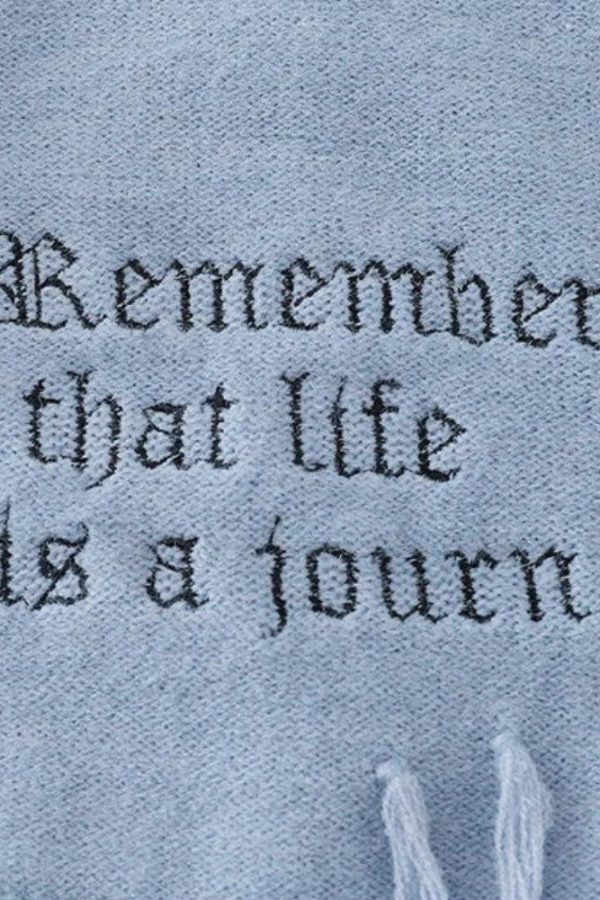 Remember
that life
is a journ